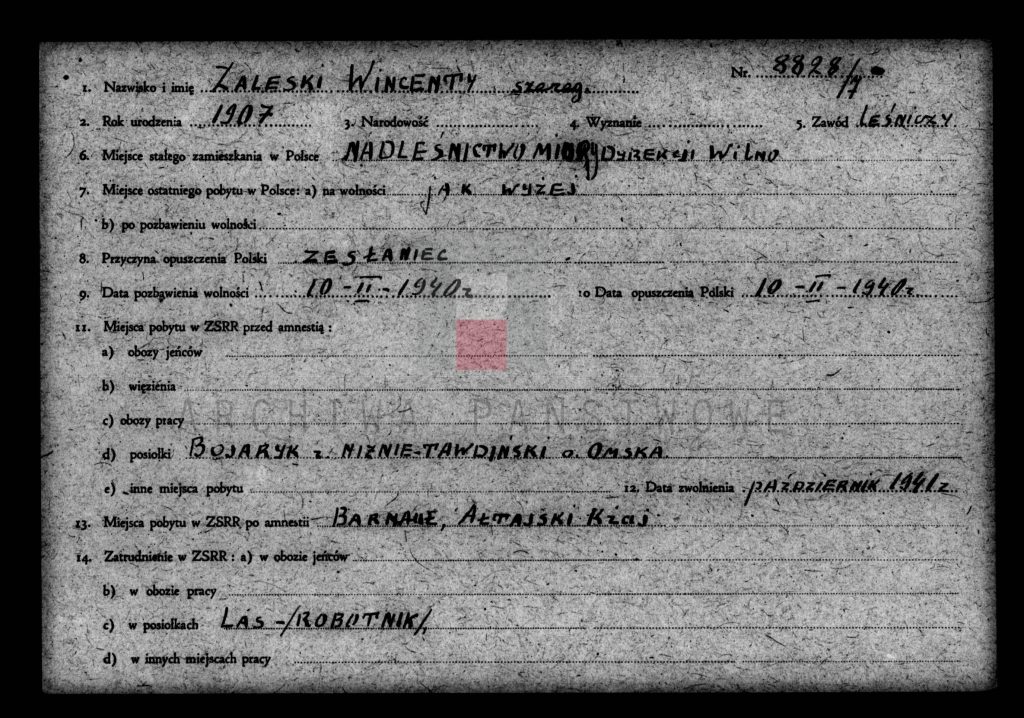 Nr. 8828/7
1. Nazwisko i imię ZALESKI WINCENTY szereg.
2. Rok urodzenia 1907 3. Narodowość 4. Wyznanie 5. Zawód LEŚNICZY
6. Miejsce stałego zamieszkania w Polsce NADLEŚNICTWO MIORY DYREKCJI WILNO
7. Miejsce ostatniego pobytu w Polsce: a) na wolności JAK WYŻEJ
b) po pozbawieniu wolności
8. Przyczyna opuszczenia Polski ZESŁANIEC
9. Data pozbawienia wolności 10 - II - 1940 r 10 Data opuszczenia Polski 10 - II - 1940 r.
11. Miejsca pobytu w ZSRR przed amnestią :
a) obozy jeńców
b) więzienia
ARCHIWA PAŃSTWOWE
c) obozy pracy
d) posiołki BOJARYK r. NIŻNIE-TAWDIŃSKI o. OMSKA
e) inne miejsca pobytu 12. Data zwolnienia PAŹDZIERNIK 1941 r.
13. Miejsca pobytu w ZSRR po amnestii BARNAUŁ, AŁTAJSKI KRAJ
14. Zatrudnienie w ZSRR : a) w obozie jeńców
b) w obozie pracy
c) w posiołkach LAS -/ROBOTNIK/,
d) w innych miejscach pracy